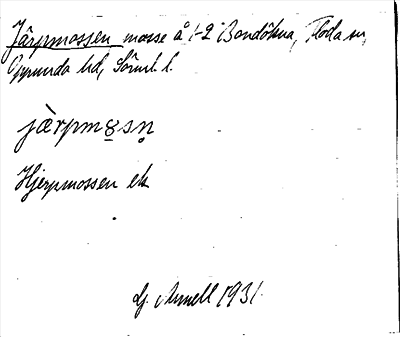 Järpmossen mosse å 1-2 Bondökna, Floda sn,
Oppunda hd, Sörml. l.
jàrpmȣsn̥
Hjerpmossen ek
G. Arnell 1931